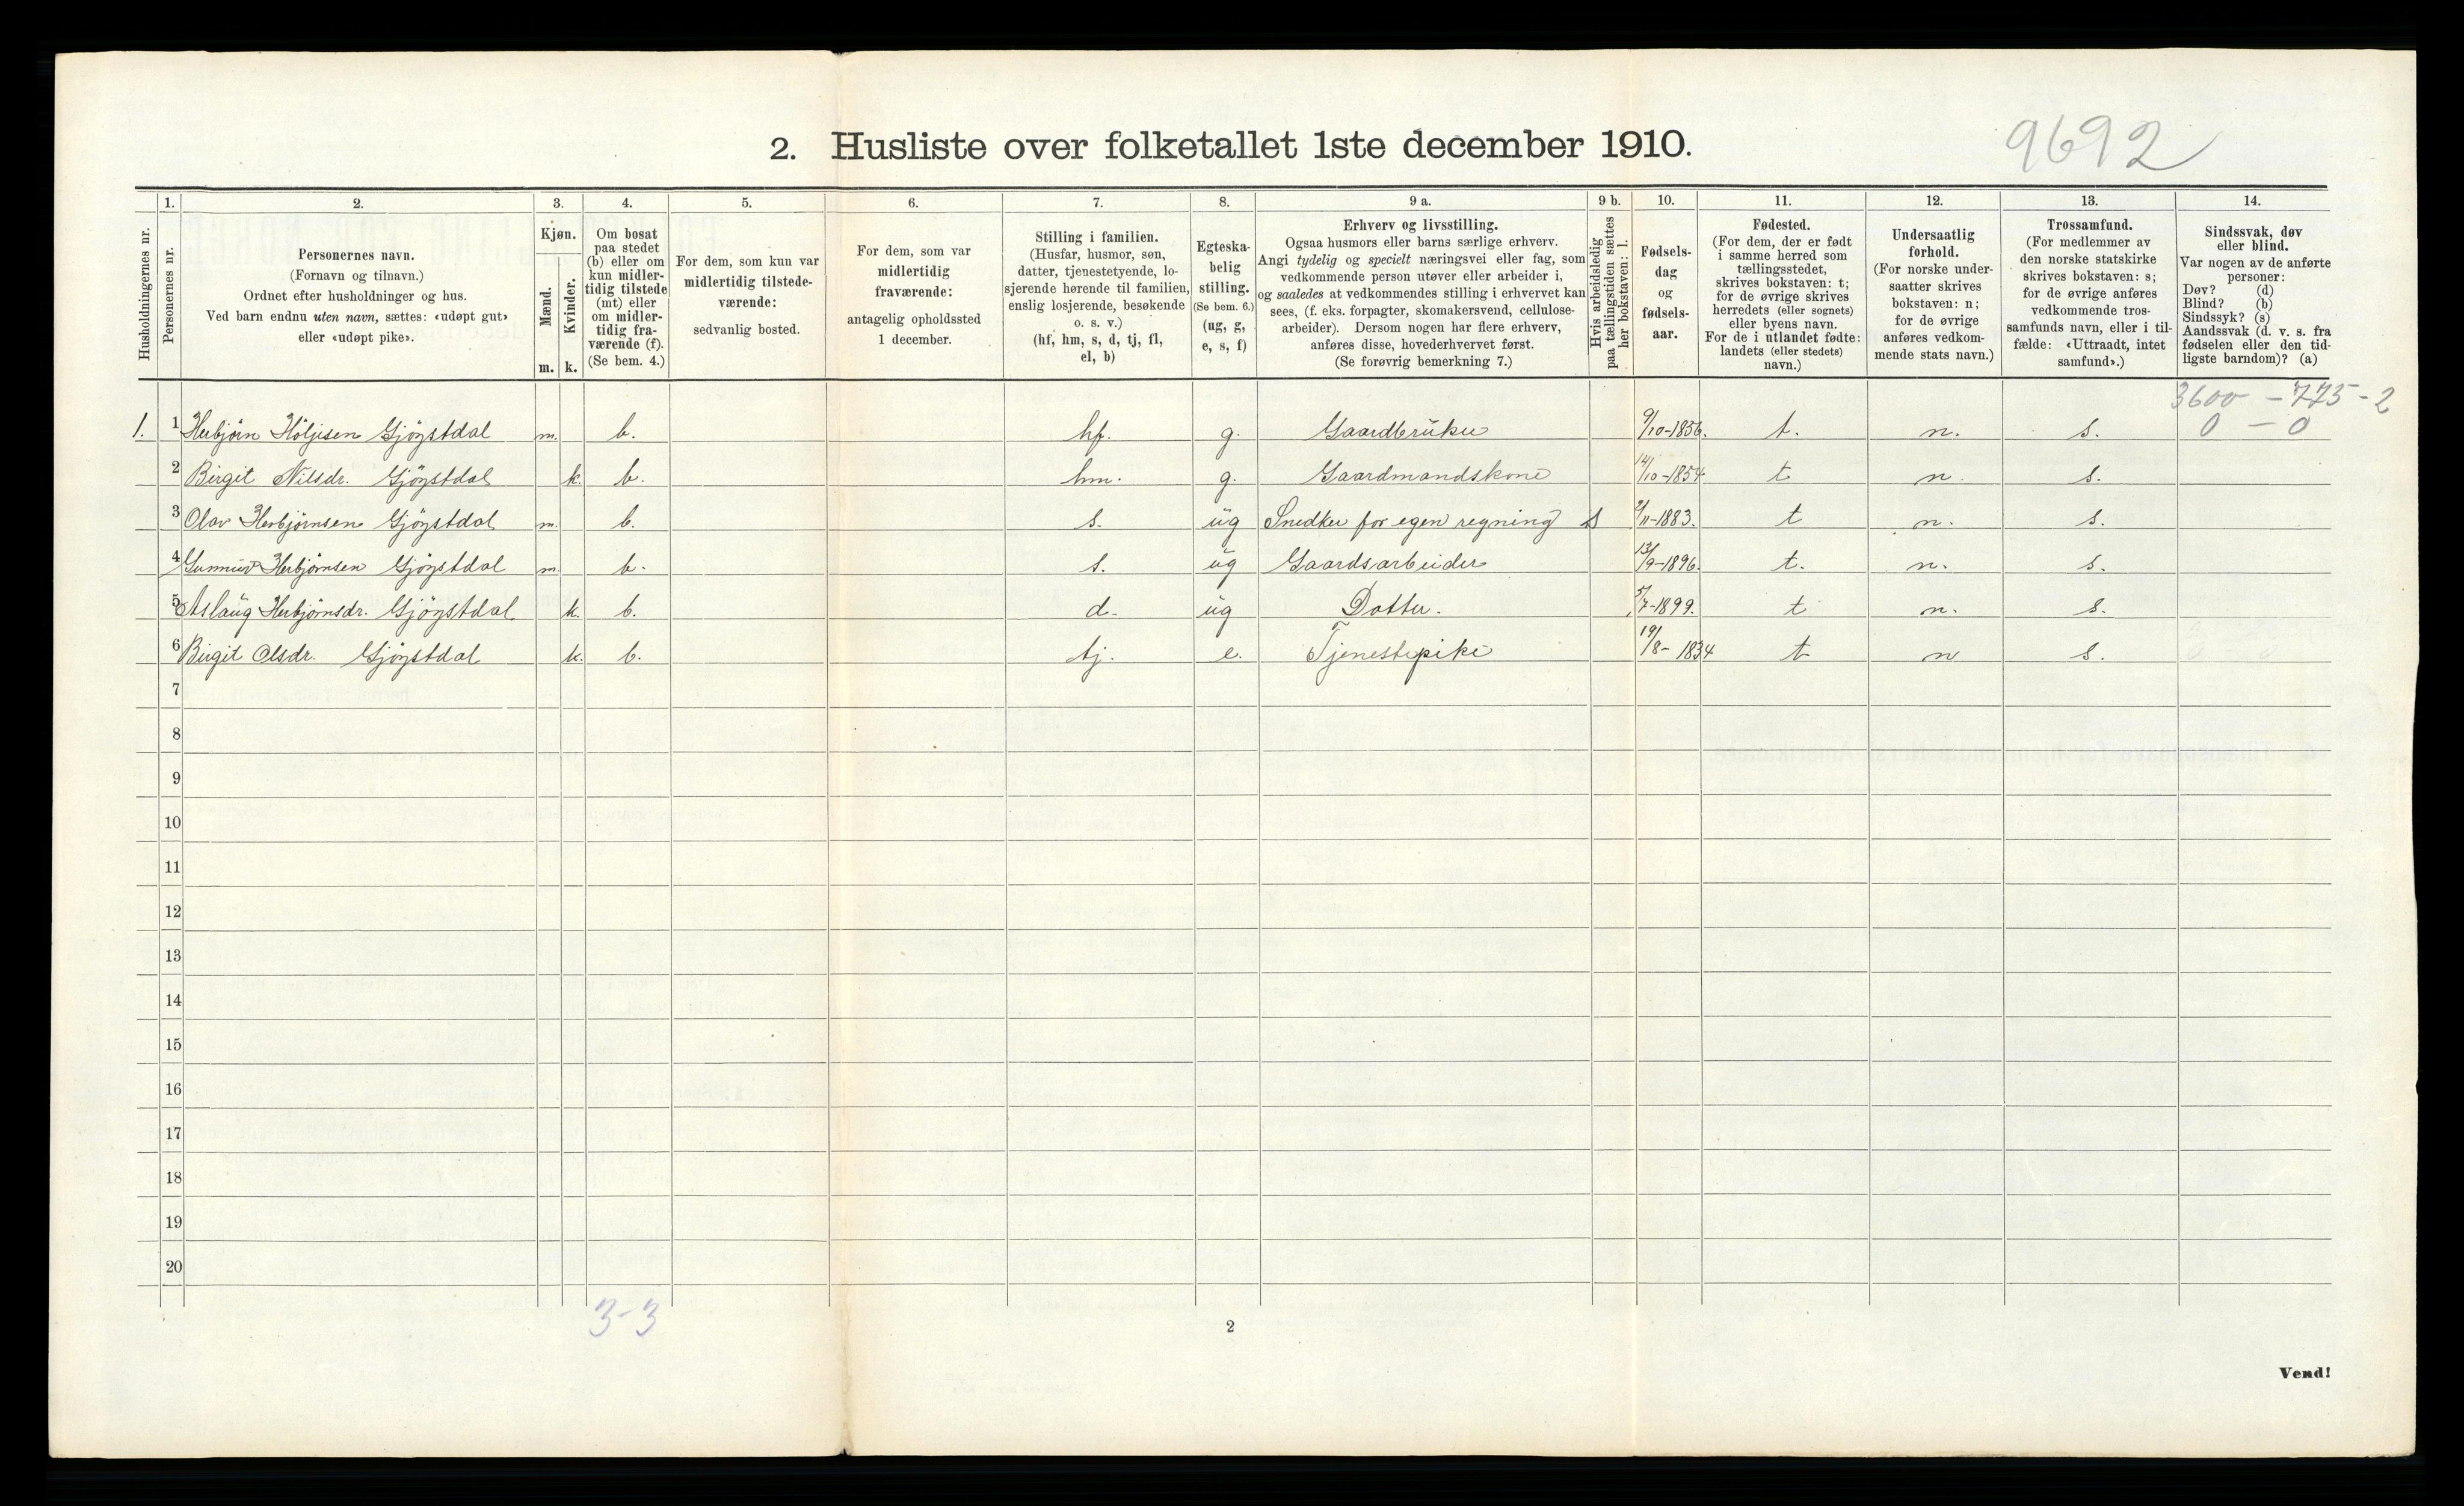 2. Husliste over folketallet 1ste december 1910.
9692
Husholdningernes nr.
1.
Personernes nr.
2.
Personernes navn.
(Fornavn og tilnavn.)
Ordnet efter husholdninger og hus.
Ved barn endnu uten navn, sættes: «udøpt gut»
eller «udøpt pike».
3.
Kjøn.
Mænd.
Kvinder.
m. k.
4.
Om bosat
paa stedet
(b) eller om
kun midler-
tidig tilstede
(mt) eller
om midler-
tidig fra-
værende (f).
(Se bem. 4.)
5.
For dem, som kun var
midlertidig tilstede-
værende:
sedvanlig bosted.
6.
For dem, som var
midlertidig
fraværende:
antagelig opholdssted
1 december.
7.
Stilling i familien.
(Husfar, husmor, søn,
datter, tjenestetyende, lo-
sjerende hørende til familien,
enslig losjerende, besøkende
o. s. v.)
(hf, hm, s, d, tj, fl,
el, b)
8.
Egteska-
belig
stilling.
(Se bem. 6.)
(ug, g,
e, s, f)
9 a.
Erhverv og livsstilling.
Ogsaa husmors eller barns særlige erhverv.
Angi tydelig og specielt næringsvei eller fag, som
vedkommende person utøver eller arbeider i,
og saaledes at vedkommendes stilling i erhvervet kan
sees, (f. eks. forpagter, skomakersvend, cellulose-
arbeider). Dersom nogen har flere erhverv,
anføres disse, hovederhvervet først.
(Se forøvrig bemerkning 7.)
9 b.
Hvis arbeidsledig
paa tællingstiden sættes
her bokstaven: l.
10.
Fødsels-
dag
og
fødsels-
aar.
11.
Fødested.
(For dem, der er født
i samme herred som
tællingsstedet,
skrives bokstaven: t;
for de øvrige skrives
herredets (eller sognets)
eller byens navn.
For de i utlandet fødte:
landets (eller stedets)
navn.)
12.
Undersaatlig
forhold.
(For norske under-
saatter skrives
bokstaven: n;
for de øvrige
anføres vedkom-
mende stats navn.)
13.
Trossamfund.
(For medlemmer av
den norske statskirke
skrives bokstaven: s;
for de øvrige anføres
vedkommende tros-
samfunds navn, eller i til-
fælde: «Uttraadt, intet
samfund».)
14.
Sindssvak, døv
eller blind.
Var nogen av de anførte
personer:
Døv? (d)
Blind? (b)
Sindssyk? (s)
Aandssvak (d. v. s. fra
fødselen eller den tid-
ligste barndom)? (a)
3600 - 775 - 2
1. 1 Herbjörn Höljesen Gjöystdal m. b. hf. g. Gaardbrüker 9/10-1856. t. n. s. 0 - 0
2 Birgit Nilsdr. Gjöystdal k. b. hm. g. Gaardmandskone 14/10-1854 t n. s.
3 Olav Herbjörnsen Gjöystdal m. b. s. üg Snedker for egen regning s /11-1883. t n. s.
4 Gunnüv Herbjörnsen Gjöystdal m. b. s. üg Gaardsarbeider 13/9-1896. t. n. s.
5 Aslaüg Herbjörnsdr. Gjöystdal k. b. d. üg Datter. 5/7-1899. t n. s.
6 Birgit Olsdr. Gjöystdal k. b. tj. e. Tjenestepike 19/8-1834 t n s.
7
8
9
10
11
12
13
14
15
16
17
18
19
20
3-3
2
Vend!